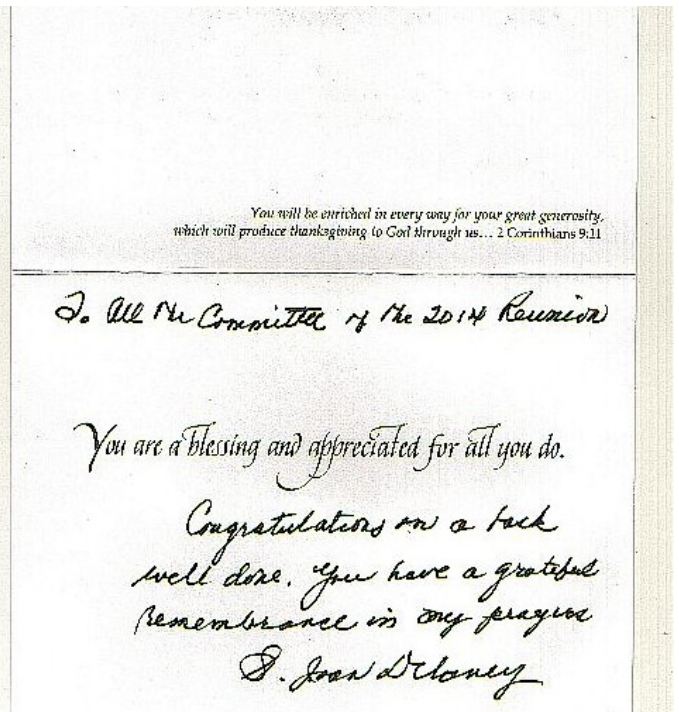 You will be enriched in every way for your great generosity,
which will produce thanksgiving to God through us... 2 Corinthians 9:11
To All the Committee of the 2014 Reunion
You are a blessing and appreciated for all you do.
Congratulations on a task
well done. You have a grateful
remembrance in my prayers
S. Joan Delaney